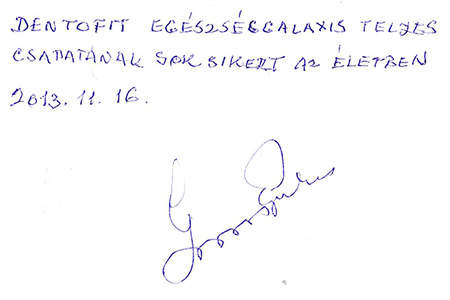 DENTOFIT EGÉSZSÉGGALAXIS TELJES
CSAPATÁNAK SOK SIKERT AZ ÉLETBEN
2013. 11. 16.